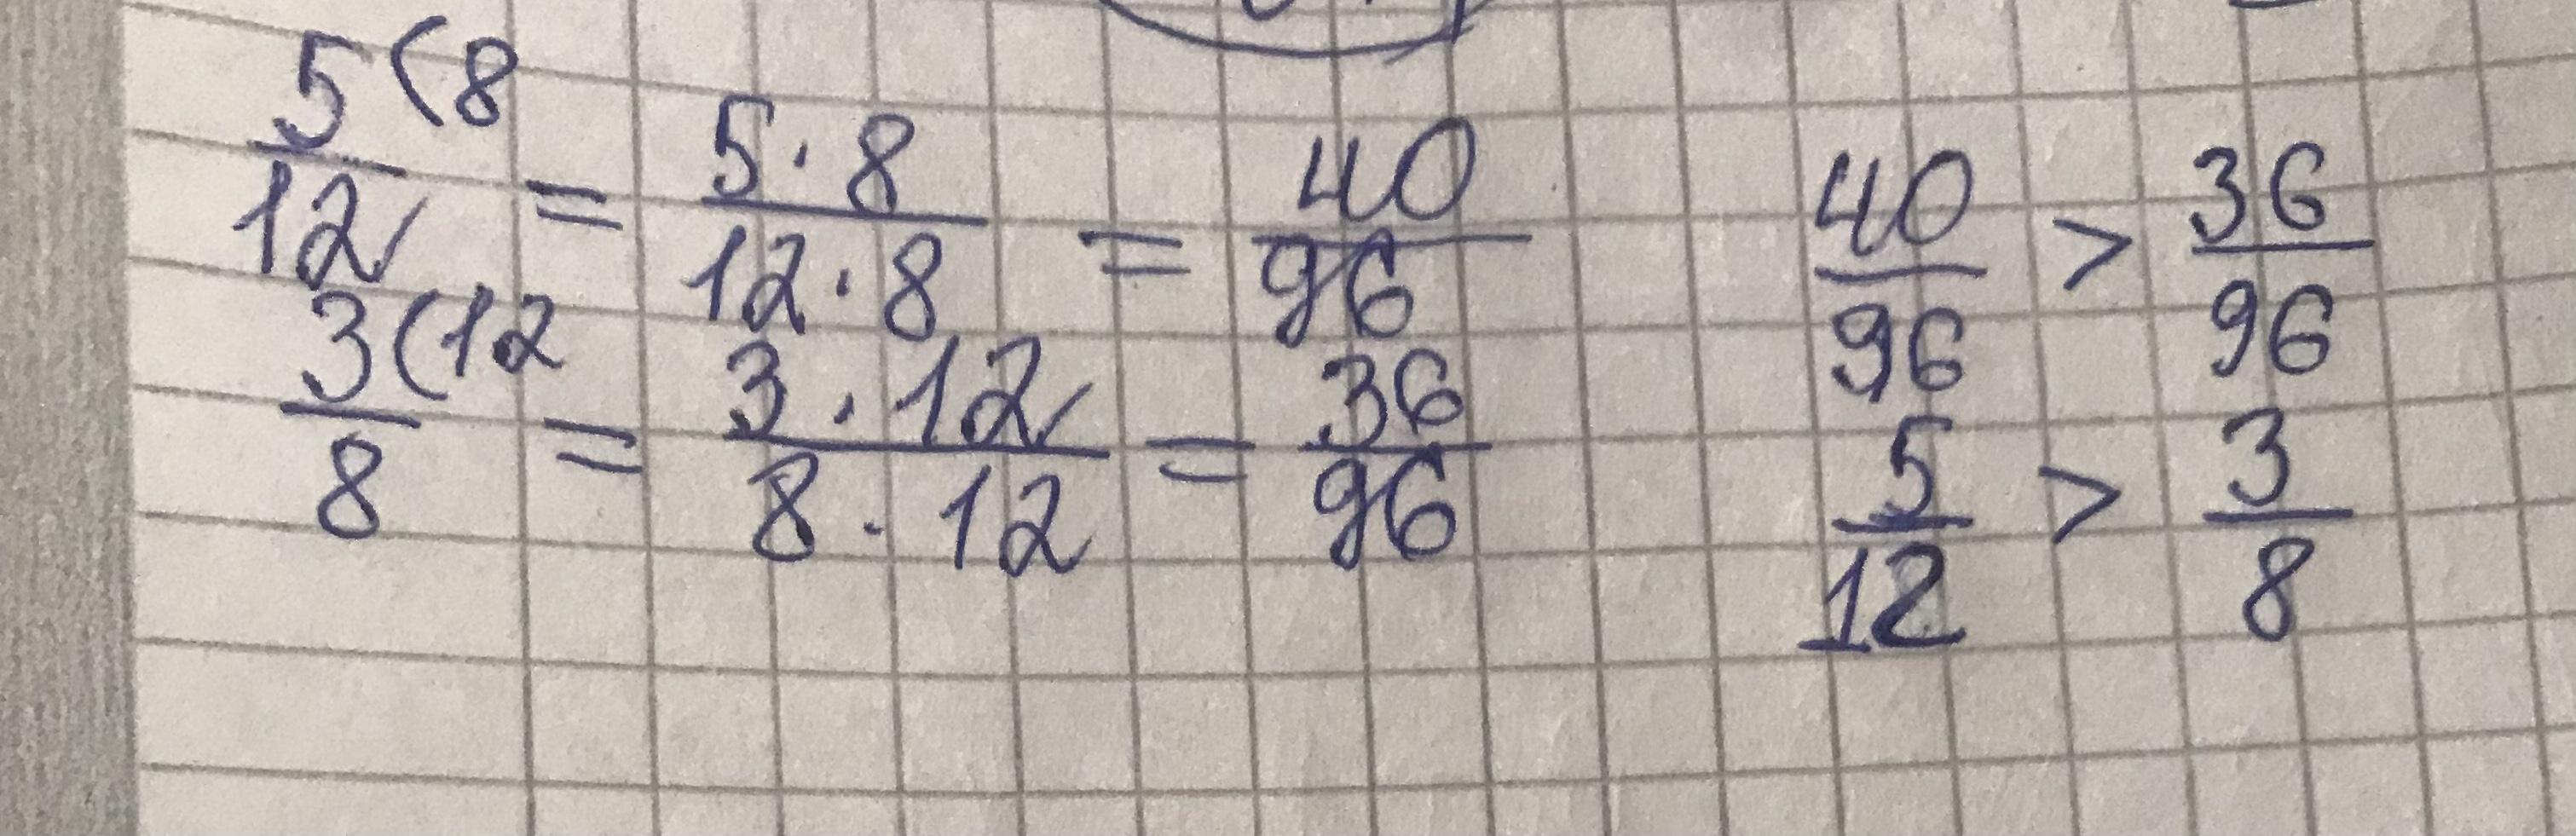 5(8
12 = 5·8 / 12·8 = 40/96
3(12
8 = 3·12 / 8·12 = 36/96
40/96 > 36/96
5/12 > 3/8